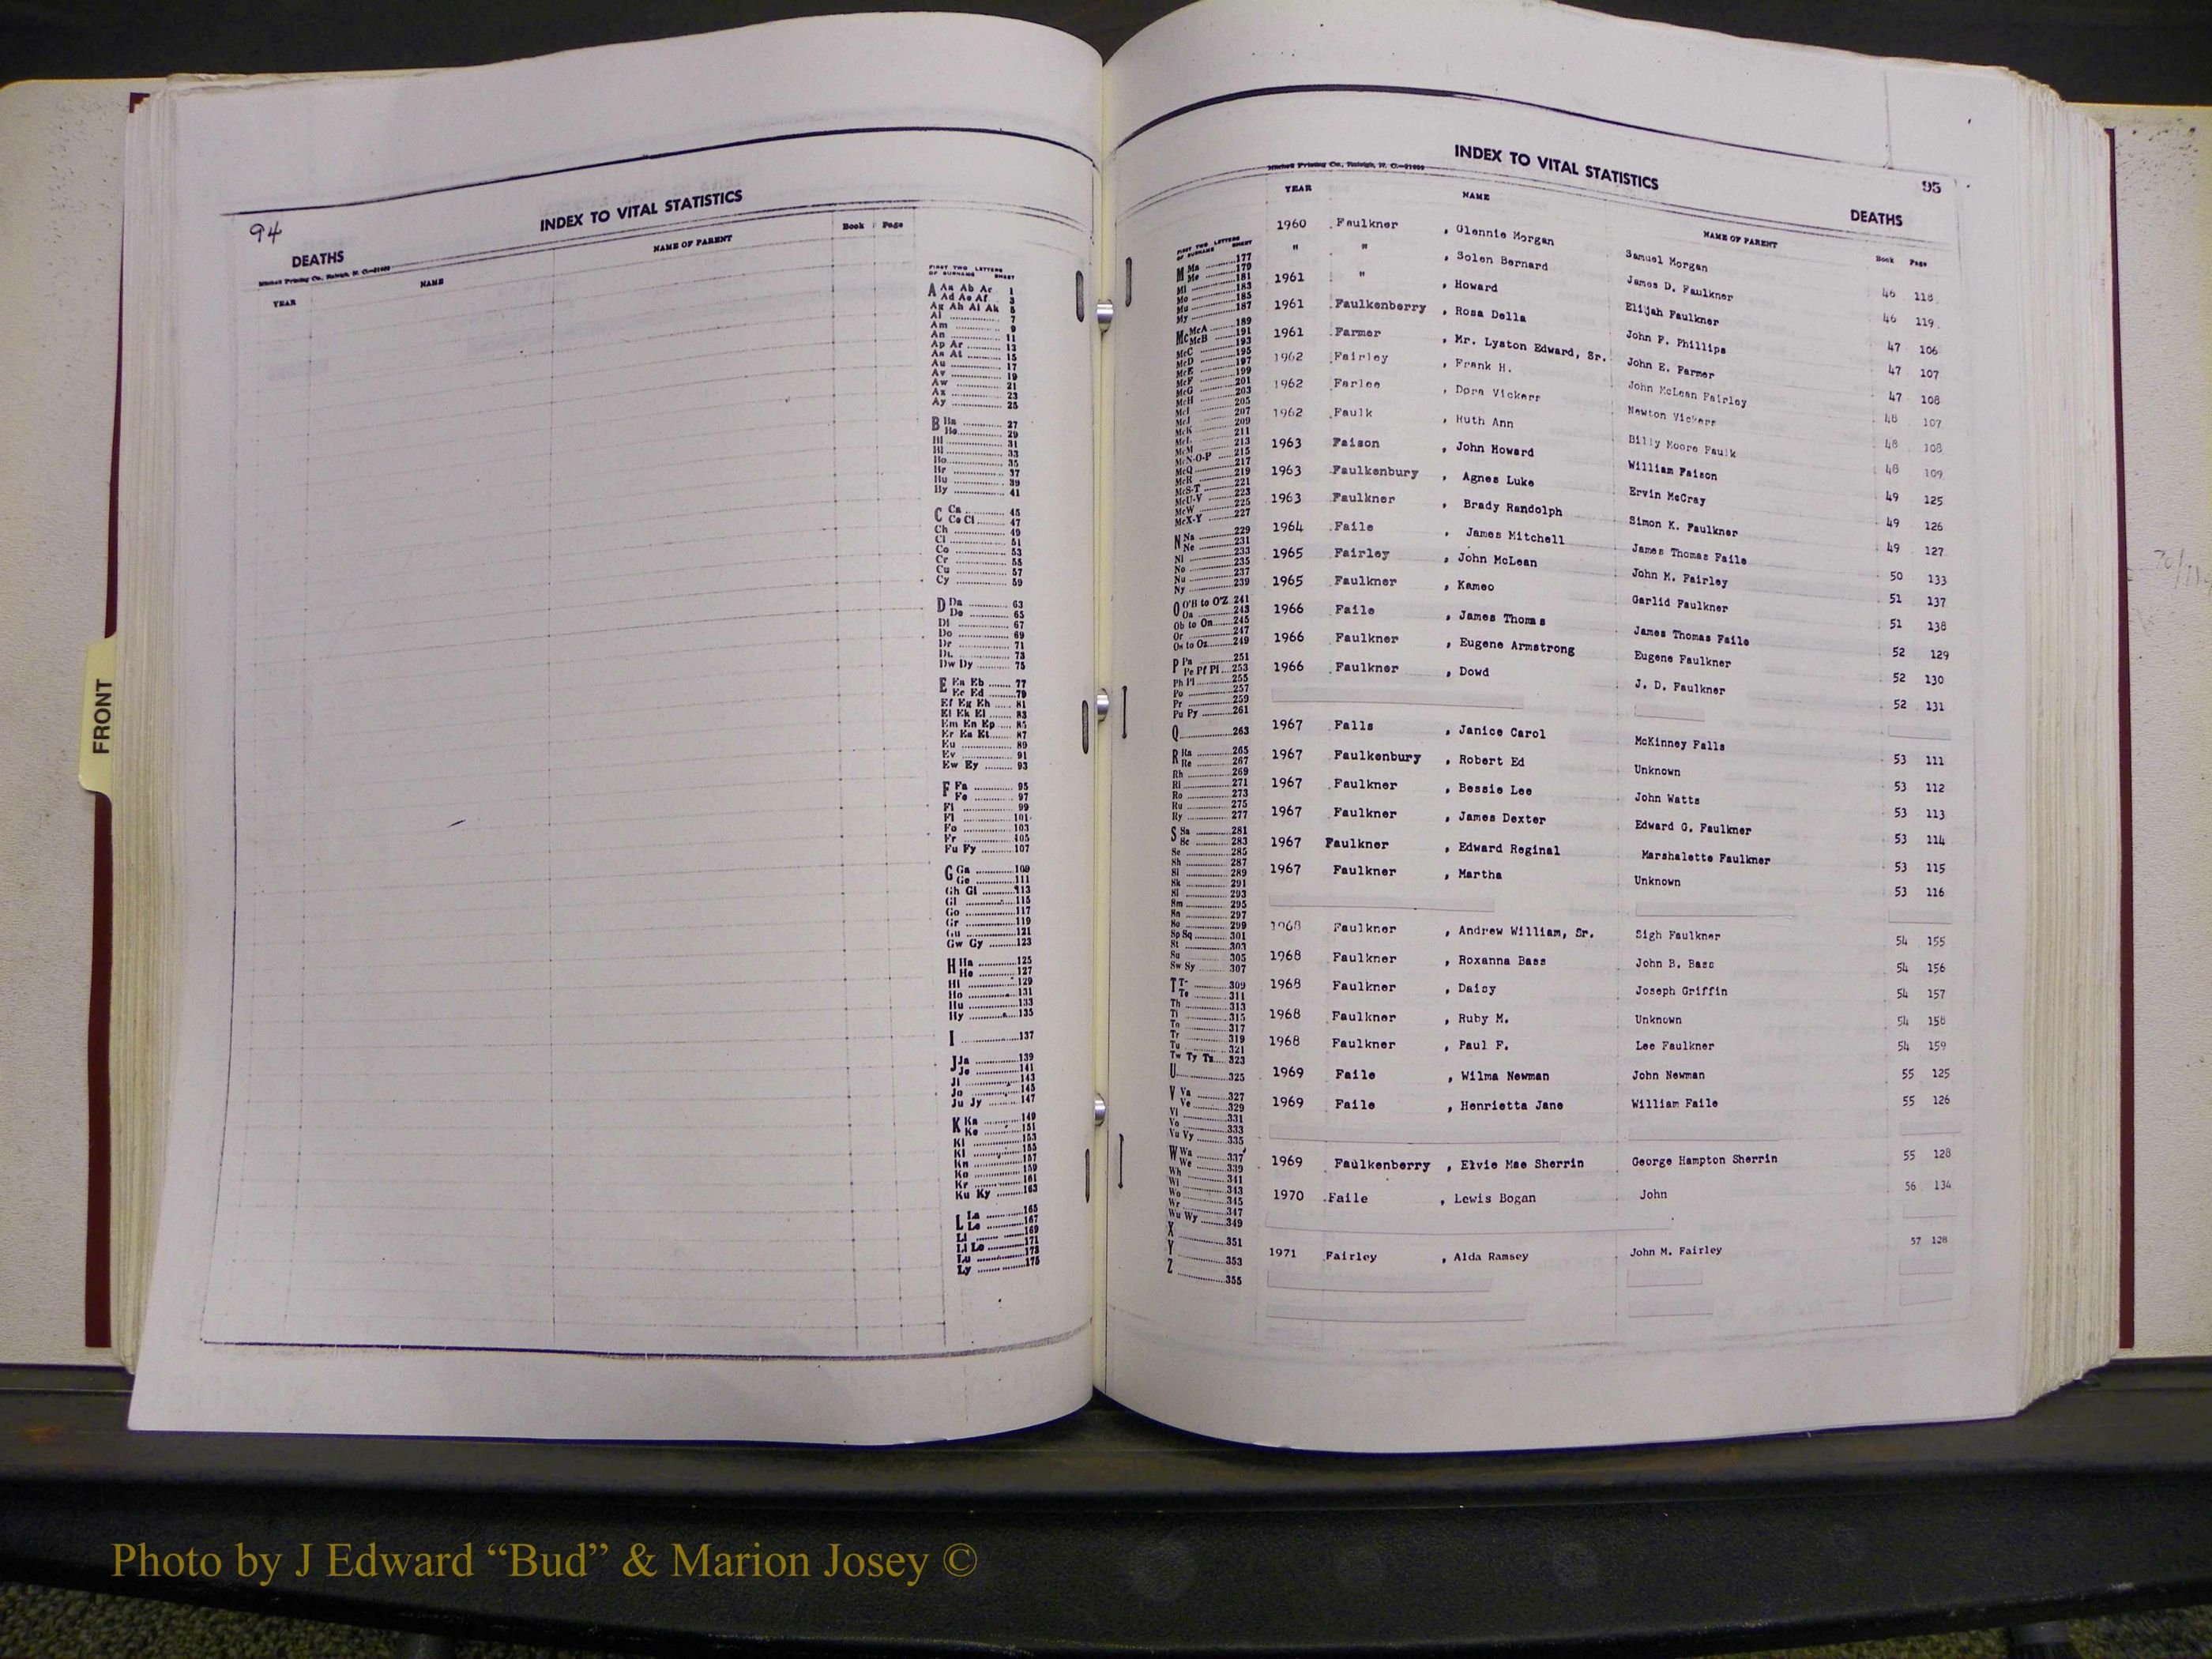 94
INDEX TO VITAL STATISTICS
DEATHS
Mitchell Printing Co., Raleigh, N. C.
YEAR NAME NAME OF PARENT Book Page
FIRST TWO LETTERS
OF SURNAME SHEET
A Aa Ab Ac 1
Ad Ae Af 3
Ag Ah Ai Ak 5
Al 7
Am 9
An 11
Ap Ar 13
As At 15
Au 17
Av 19
Aw 21
Ax 23
Ay 25
B Ba 27
Be 29
31
33
Bo 35
Br 37
Bu 39
By 41
C Ca 45
Ce Ci 47
Ch 49
Cl 51
Co 53
Cr 55
Cu 57
Cy 59
D Da 63
De 65
Di 67
Do 69
Dr 71
Du 73
Dw Dy 75
E Ea Eb 77
Ec Ed 79
Ef Eg Eh 81
Ei Ek El 83
Em En Ep 85
Er Es Et 87
Eu 89
Ev 91
Ew Ey 93
F Fa 95
Fe 97
Fi 99
Fl 101
Fo 103
Fr 105
Fu Fy 107
G Ga 109
Ge 111
Gh Gi 113
Gl 115
Go 117
Gr 119
Gu 121
Gw Gy 123
H Ha 125
He 127
Hi 129
Ho 131
Hu 133
Hy 135
I 137
J Ja 139
Je 141
Ji 143
Jo 145
Ju Jy 147
K Ka 149
Ke 151
Ki 153
Kl 155
Kn 157
Ko 159
Kr 161
Ku Ky 163
L La 165
Le 167
Li 169
Ll Lo 171
Lu 173
Ly 175
95
INDEX TO VITAL STATISTICS
DEATHS
Mitchell Printing Co., Raleigh, N. C.
YEAR NAME NAME OF PARENT Book Page
FIRST TWO LETTERS
OF SURNAME SHEET
M Ma 177
Me 179
Mi 181
Mo 183
Mu 185
My 187
Mc McA 189
McB 191
McC 193
McD 195
McE 197
McF 199
McG 201
McH 203
McI 205
McJ 207
McK 209
McL 211
McM 213
McN-O-P 215
McQ 217
McR 219
McS-T 221
McU-V 223
McW 225
McX-Y 227
N Na 229
Ne 231
Ni 233
No 235
Nu 237
Ny 239
O O'B to O'Z 241
Oa 243
Ob to On 245
Or 247
Os to Oz 249
P Pa 251
Pe Pf Pi 253
Ph Pl 255
Po 257
Pr 259
Pu Py 261
Q 263
R Ra 265
Re 267
Rh 269
Ri 271
Ro 273
Ru 275
Ry 277
S Sa 281
Sc 283
Se 285
Sh 287
Si 289
Sk 291
Sl 293
Sm 295
Sn 297
So 299
Sp Sq 301
St 303
Su 305
Sw Sy 307
T 309
Te 311
Th 313
Ti 315
To 317
Tr 319
Tu 321
Tw Ty Tz 323
U 325
V Va 327
Ve 329
Vi 331
Vo 333
Vu Vy 335
W Wa 337
We 339
Wh 341
Wi 343
Wo 345
Wr 347
Wu Wy 349
X 351
Y 353
Z 355
1960 Faulkner , Glennie Morgan Samuel Morgan 46 118
" " , Solen Bernard James D. Faulkner 46 119
1961 " , Howard Elijah Faulkner 47 106
1961 Faulkenberry , Rosa Della John F. Phillips 47 107
1961 Farmer , Mr. Lyston Edward, Sr. John E. Farmer 47 108
1962 Fairley , Frank H. John McLean Fairley 48 107
1962 Farlee , Dora Vickers Newton Vickers 48 108
1962 Faulk , Ruth Ann Billy Moore Faulk 48 109
1963 Faison , John Howard William Faison 49 125
1963 Faulkenbury , Agnes Luke Ervin McCray 49 126
1963 Faulkner , Brady Randolph Simon K. Faulkner 49 127
1964 Faile , James Mitchell James Thomas Faile 50 133
1965 Fairley , John McLean John M. Fairley 51 137
1965 Faulkner , Kameo Garlid Faulkner 51 138
1966 Faile , James Thomas James Thomas Faile 52 129
1966 Faulkner , Eugene Armstrong Eugene Faulkner 52 130
1966 Faulkner , Dowd J. D. Faulkner 52 131
1967 Falls , Janice Carol McKinney Falls 53 111
1967 Faulkenbury , Robert Ed Unknown 53 112
1967 Faulkner , Bessie Lee John Watts 53 113
1967 Faulkner , James Dexter Edward G. Faulkner 53 114
1967 Faulkner , Edward Reginal Marshalette Faulkner 53 115
1967 Faulkner , Martha Unknown 53 116
1968 Faulkner , Andrew William, Sr. Sigh Faulkner 54 155
1968 Faulkner , Roxanna Bass John B. Bass 54 156
1968 Faulkner , Daisy Joseph Griffin 54 157
1968 Faulkner , Ruby M. Unknown 54 158
1968 Faulkner , Paul F. Lee Faulkner 54 159
1969 Faile , Wilma Newman John Newman 55 125
1969 Faile , Henrietta Jane William Faile 55 126
1969 Faulkenberry , Elvie Mae Sherrin George Hampton Sherrin 55 128
1970 Faile , Lewis Bogan John 56 134
1971 Fairley , Alda Ramsey John M. Fairley 57 128
FRONT
Photo by J Edward “Bud” & Marion Josey ©